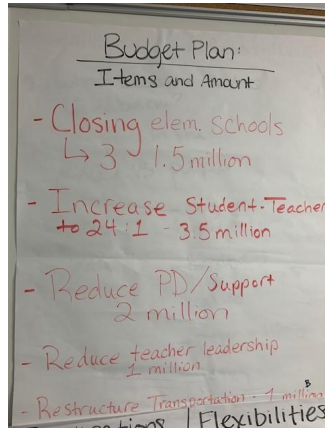 Budget Plan:
Items and Amount
- Closing elem. schools
↳ 3 1.5 million
- Increase Student-Teacher
to 24:1 - 3.5 million
- Reduce PD/Support
2 million
- Reduce teacher leadership
1 million
- Restructure Transportation - 1 million
Flexibilities